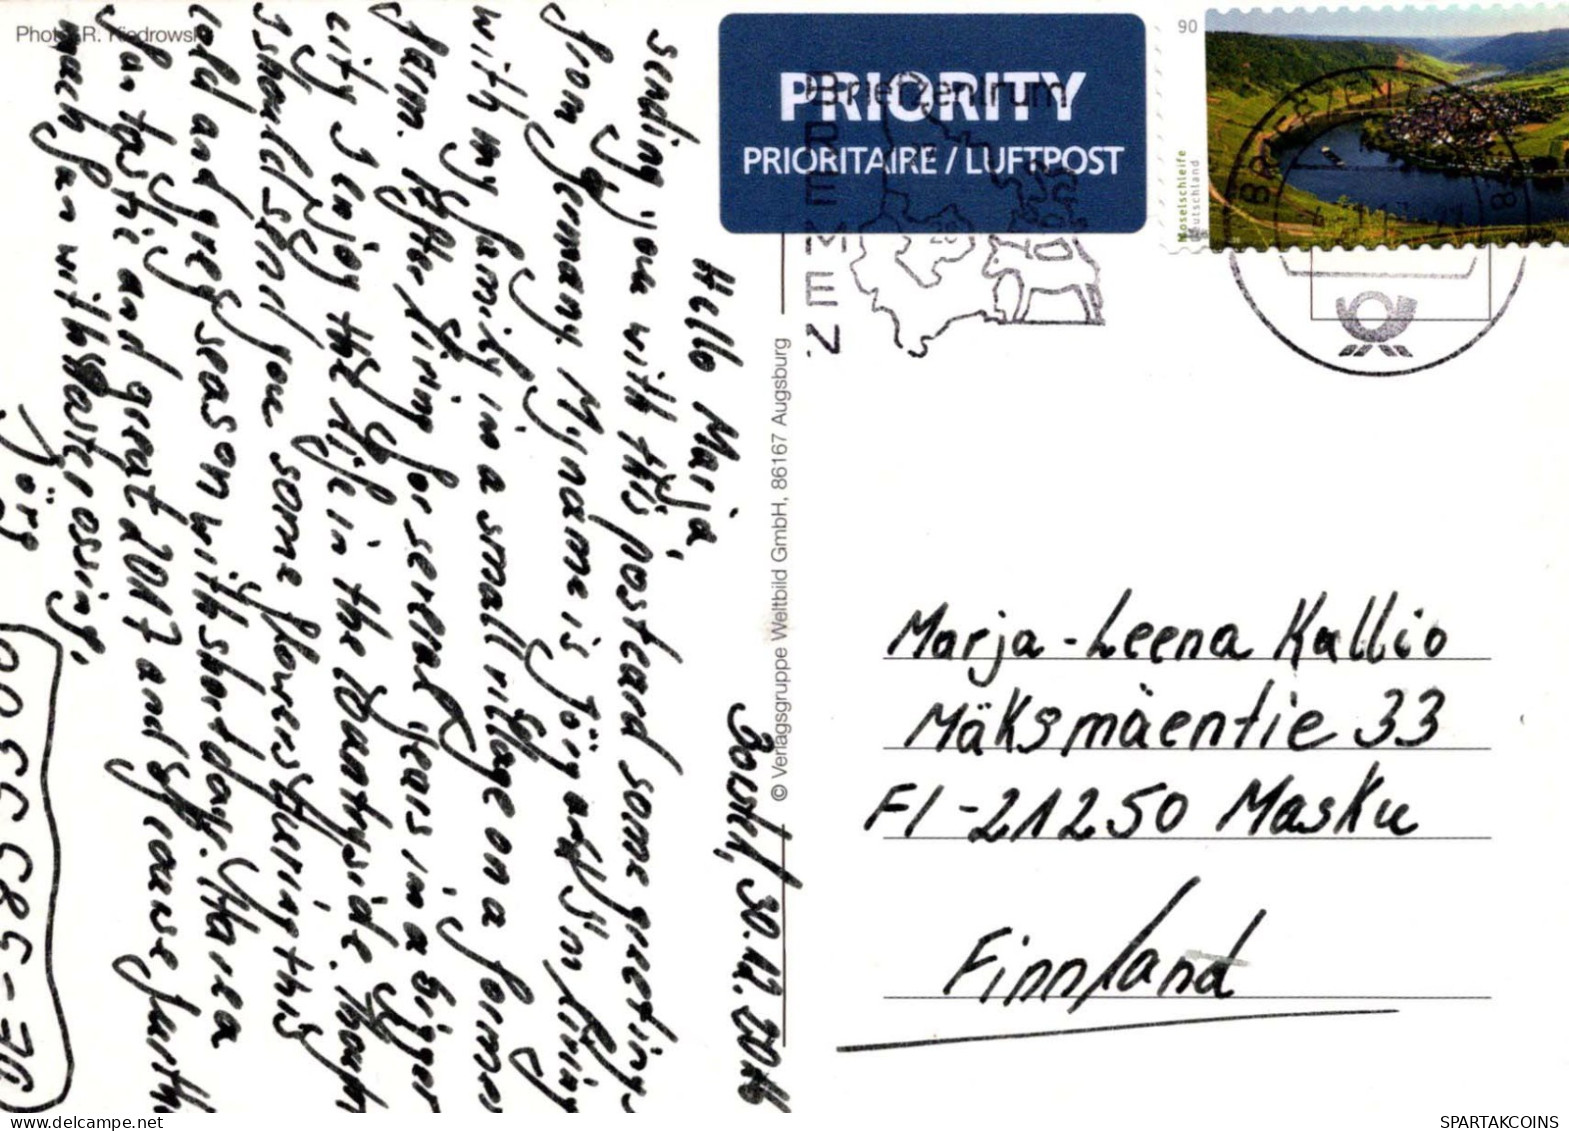 Photo: R. Kiedrowski
30.12.2016
Hello Marja,
sending you with this postcard some greetings
from Germany. My name is Jörg and I'm living
with my family in a small village on a former
farm. After living for several years in a bigger
city I enjoy the life in the countryside. I thought
I should send you some flowers during this
cold and grey season with short days. Have a
fantastic and great 2017 and of course further
much fun with postcrossing.
Jörg
© Verlagsgruppe Weltbild GmbH, 86167 Augsburg
PRIORITY
PRIORITAIRE / LUFTPOST
Briefzentrum
28
90
Moselschleife
Deutschland
BRIEFZENTRUM
Marja-Leena Kallio
Mäksmäentie 33
FI-21250 Masku
Finnland
SPARTAKCOINS